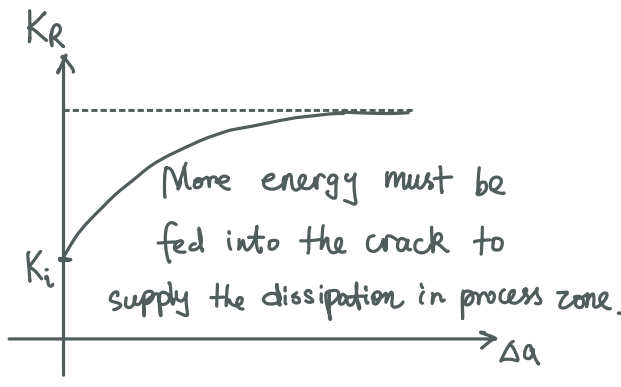 K_R
More energy must be
fed into the crack to
K_i
supply the dissipation in process zone.
Δa